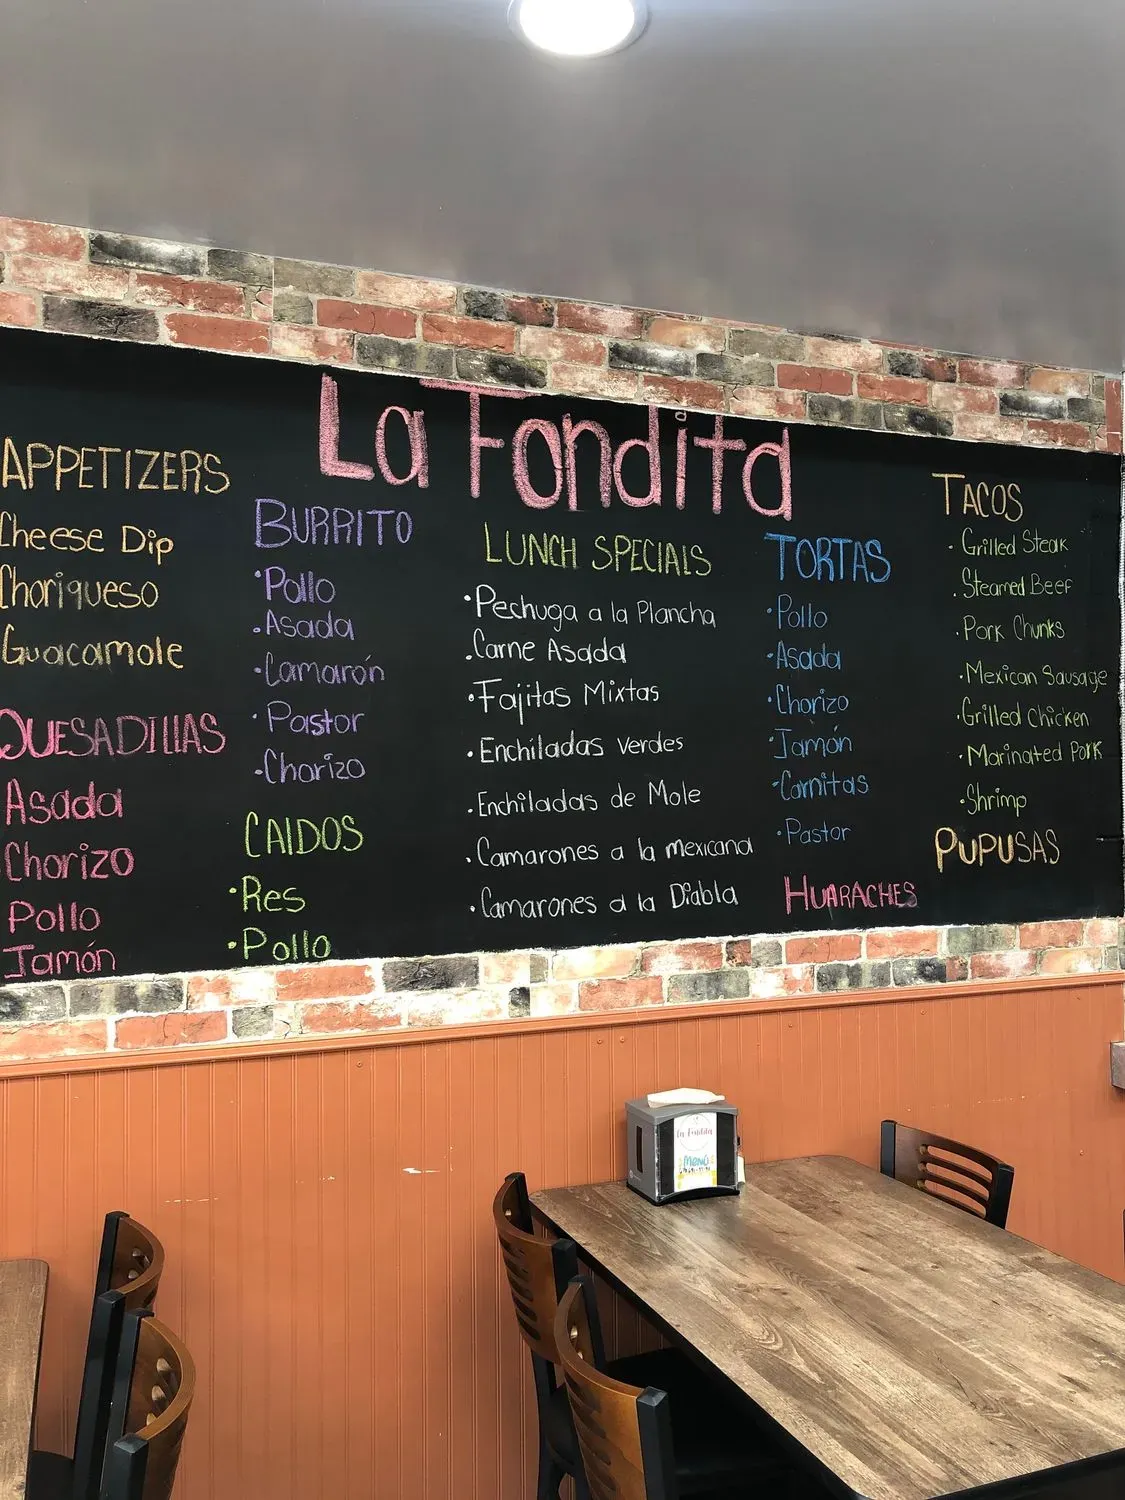 La Fondita
APPETIZERS
Cheese Dip
Choriqueso
Guacamole
QUESADILLAS
Asada
Chorizo
Pollo
Jamón
BURRITO
·Pollo
·Asada
·Camarón
·Pastor
·Chorizo
CAIDOS
·Res
·Pollo
LUNCH SPECIALS
·Pechuga a la Plancha
·Carne Asada
·Fajitas Mixtas
·Enchiladas verdes
·Enchiladas de Mole
·Camarones a la mexicana
·Camarones a la Diabla
TORTAS
·Pollo
·Asada
·Chorizo
·Jamón
·Carnitas
·Pastor
HUARACHES
TACOS
·Grilled Steak
·Steamed Beef
·Pork Chunks
·Mexican Sausage
·Grilled Chicken
·Marinated Pork
·Shrimp
PUPUSAS
La Fondita
MENÚ